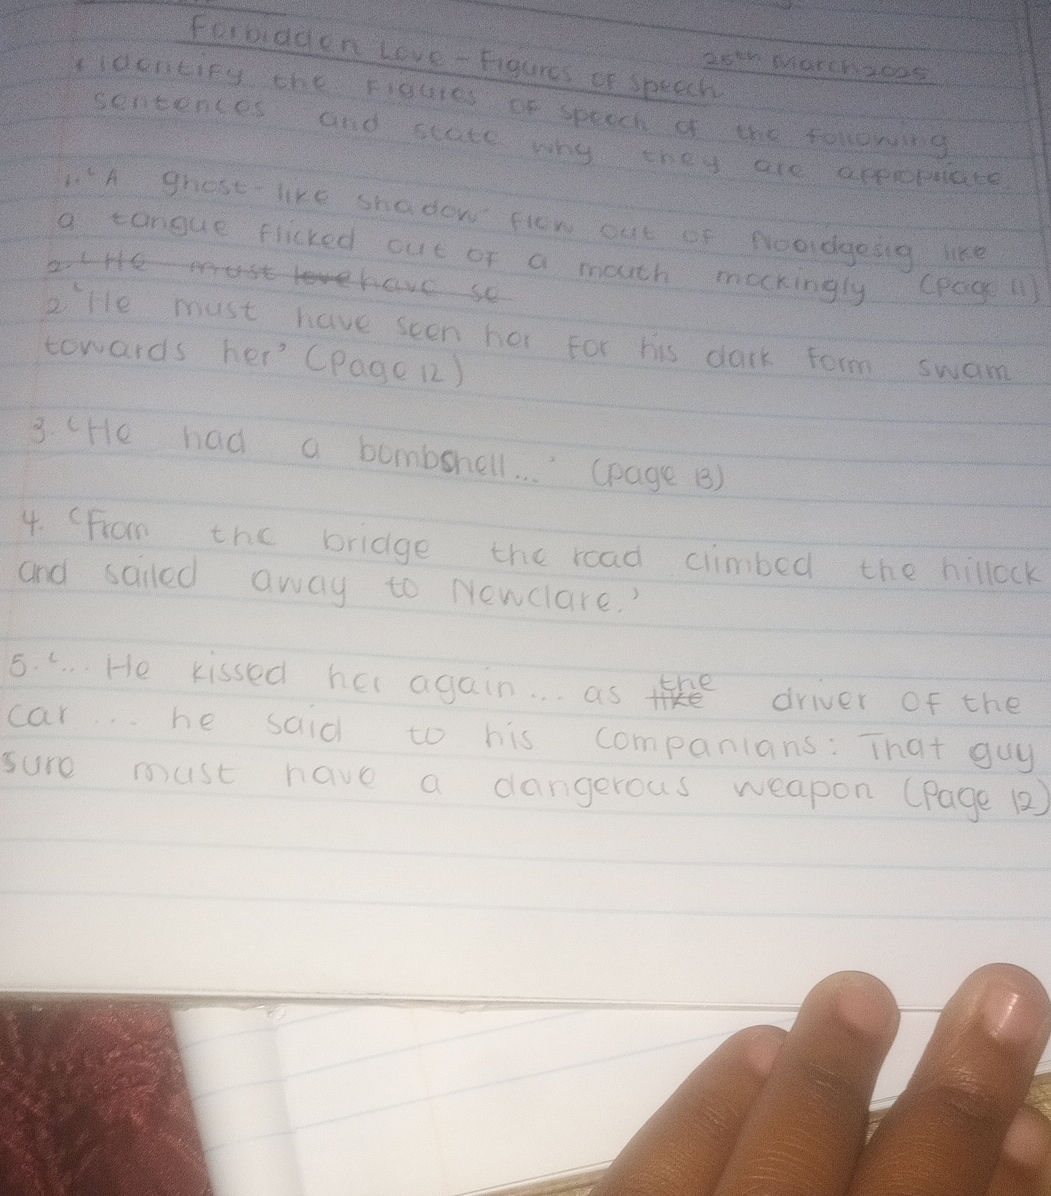 Forbidden Love - Figures of Speech
25th March 2025
identify the Figures of Speech of the following
sentences and state why they are appropriate
1. 'A ghost-like shadow flew out of Nooidgesig like
a tongue flicked out of a mouth mockingly (page 11)
2. 'He must love have se
2. 'He must have seen her for his dark form swam
towards her' (Page 12)
3. 'He had a bombshell...' (page 13)
4. 'From the bridge the road climbed the hillock
and sailed away to Newclare.'
5. '... He kissed her again... as like the driver of the
car ... he said to his companians: That guy
sure must have a dangerous weapon (Page 12)